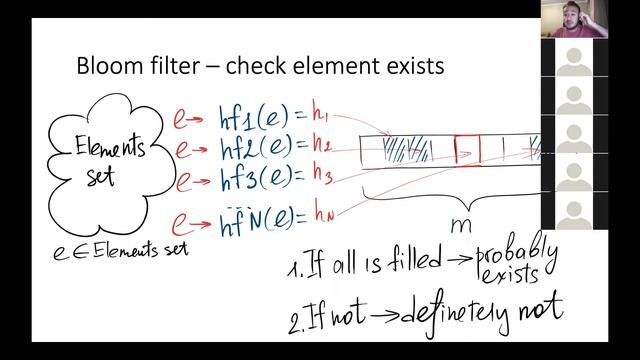 Bloom filter – check element exists
Elements
set
e → hf1(e) = h1
e → hf2(e) = h2
e → hf3(e) = h3
...
e → hfN(e) = hN
e ∈ Elements set
m
1. If all is filled → probably
exists
2. If not → definetely not